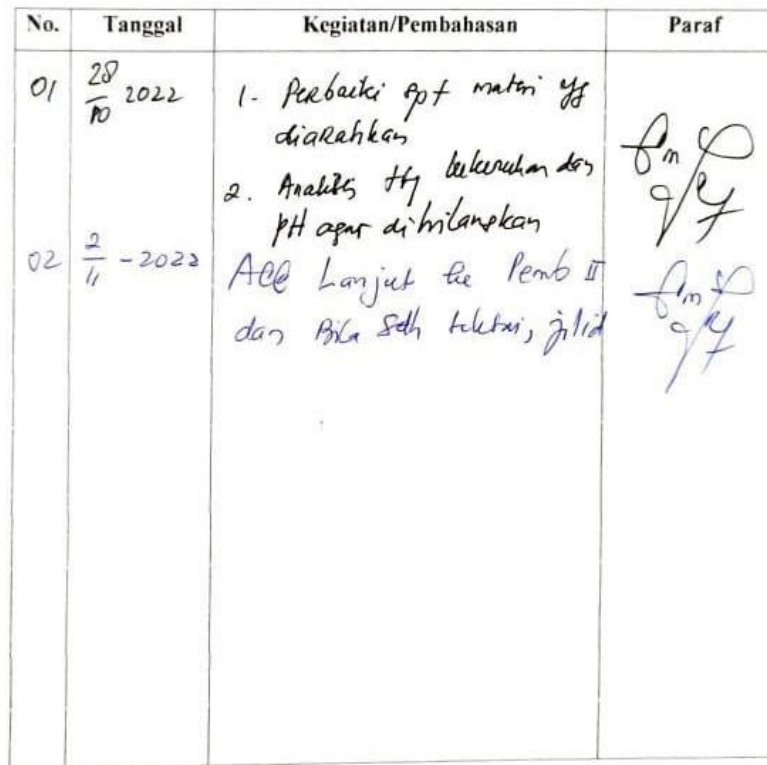 No. Tanggal Kegiatan/Pembahasan Paraf
01 28/10 2022 1. Perbaiki spt materi yg
diarahkan
2. Analisis ttg kekeruhan dan
pH agar dihilangkan
02 2/11 - 2022 ACC Lanjut ke Pemb II
dan Bila Sdh, jilid